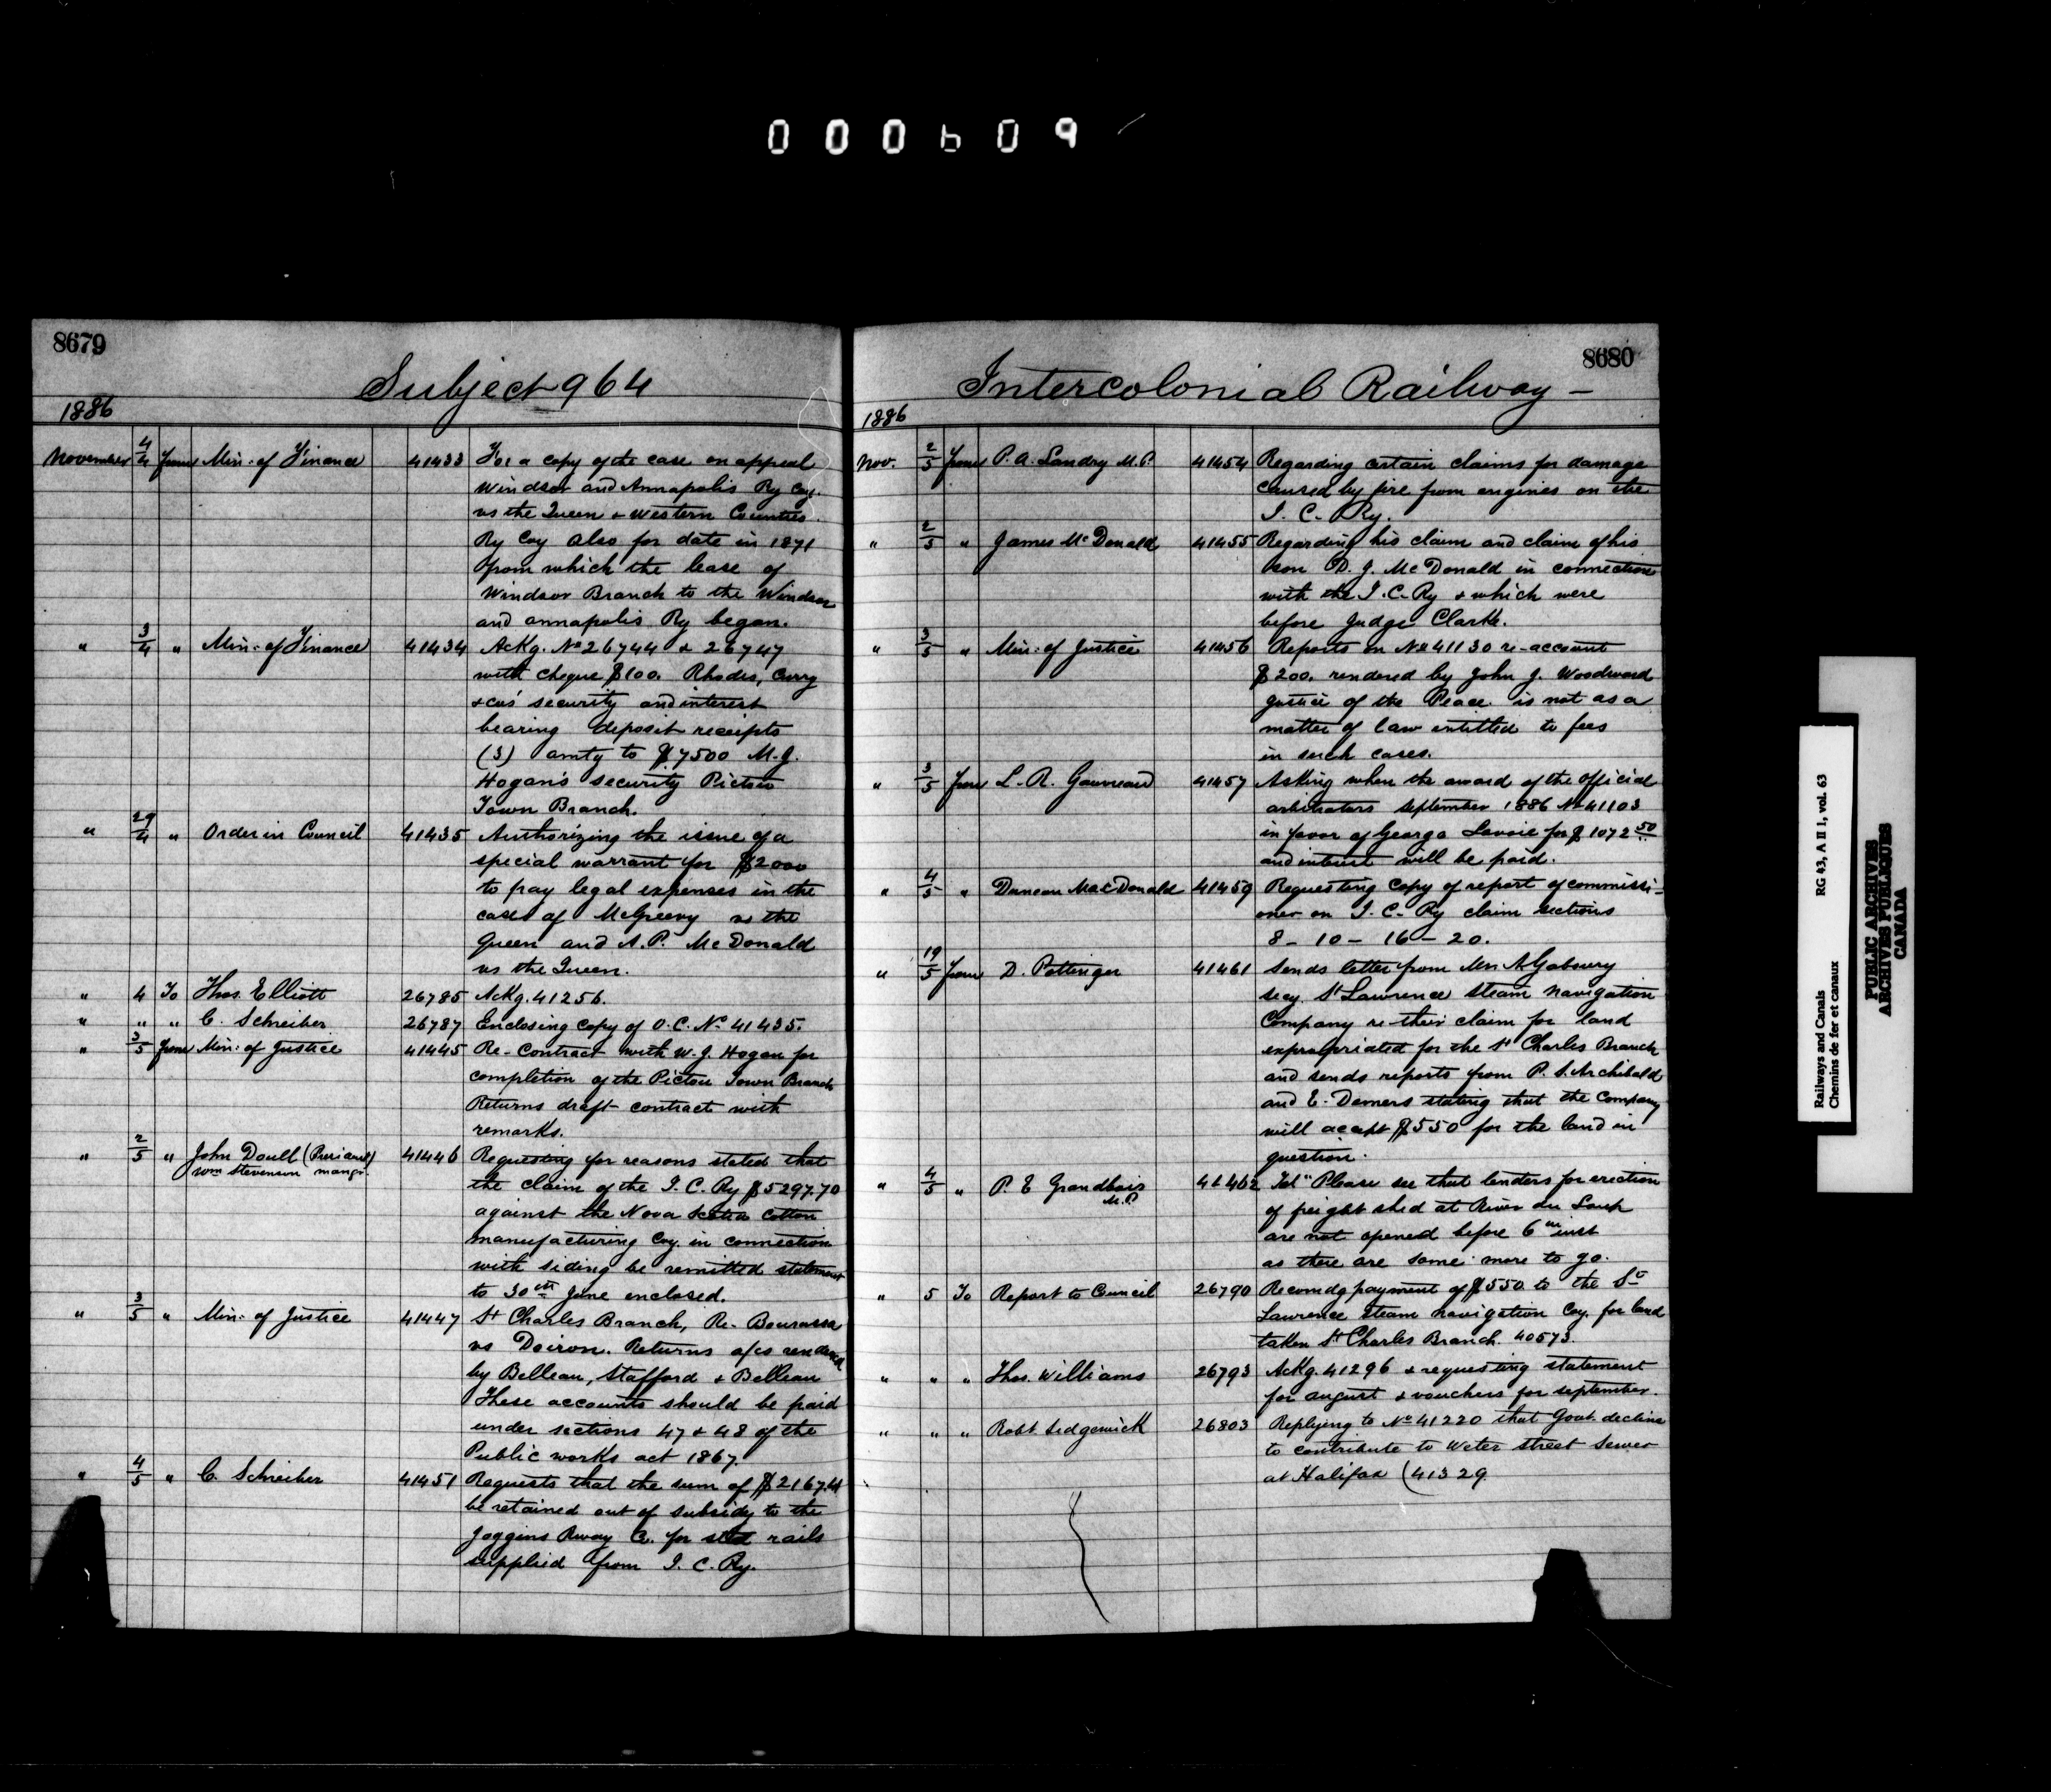 000609
8679
Subject 964
1886
November 4/4 From Min: of Finance 41433 For a copy of the case on appeal
Windsor and Annapolis Ry Coy.
vs the Queen & Western Counties
Ry Coy Also for date in 1871
from which the lease of
Windsor Branch to the Windsor
and Annapolis Ry began.
" 3/4 " Min: of Finance 41434 Ackg. No 26744 & 26747
with cheque $100. Rhodes, Curry
& Co's security and interest
bearing deposit receipts
(3) amtg to $7500 M.J.
Hogan's security Pictou
Town Branch.
" 29/4 " Order in Council 41435 Authorizing the issue of a
special warrant for $2000
to pay legal expenses in the
case of McGreevy vs the
Queen and A.P. McDonald
vs the Queen.
" 4 To Thos. Elliott 26785 Ackg. 41256.
" " " C. Schreiber 26787 Enclosing copy of O.C. No 41435.
" 3/5 From Min: of Justice 41445 Re-Contract with W.J. Hogan for
completion of the Pictou Town Branch
Returns draft contract with
remarks.
" 2/5 " John Doull (President) 41446 Requesting for reasons stated that
Wm Stevenson mangr.
the claim of the I.C. Ry $5297.70
against the Nova Scotia Cotton
manufacturing Coy. in connection
with siding be remitted statement
to 30th June enclosed.
" 3/5 " Min: of Justice 41447 St Charles Branch, Re- Bourassa
vs Doiron. Returns a/cs rendered
by Belleau, Stafford & Belleau
These accounts should be paid
under sections 47 & 48 of the
Public works act 1867
" 4/5 " C. Schreiber 41451 Requests that the sum of $2167.14
be retained out of subsidy to the
Joggins Rway Co. for steel rails
supplied from I.C. Ry.
8680
Intercolonial Railway -
1886
Nov. 2/5 From P.A. Landry M.P. 41454 Regarding certain claims for damage
caused by fire from engines on the
I. C. Ry.
" 2/5 " James McDonald 41455 Regarding his claim and claim of his
son D.J. McDonald in connection
with the I.C. Ry & which were
before Judge Clark.
" 3/5 " Min: of Justice 41456 Reports on No 41130 re-account
$200. rendered by John J. Woodward
Justice of the Peace. is not as a
matter of law entitled to fees
in such cases.
" 3/5 From L.R. 41457 Asking when the award of the official
arbitrators September 1886 No 41103
in favor of George Lavoie for $1072 50
and interest will be paid.
" 4/5 " Duncan MacDonald 41459 Requesting copy of report of commissi-
oner on I.C. Ry claim sections
8 - 10 - 16 - 20.
" 19/5 From D. Pottinger 41461 Sends letter from Mr A Gaboury
secy. St Lawrence Steam Navigation
Company re their claim for land
expropriated for the St Charles Branch
and sends reports from P.S. Archibald
and E. Demers stating that the Company
will accept $550 for the land in
question.
" 4/5 " P. E Grandbois 41462 Tel "Please see that tenders for erection
M.P.
of freight shed at River du Loup
are not opened before 6th inst
as there are some more to go.
" 5 To Report to Council 26790 Recomdg payment of $550 to the St
Lawrence Steam Navigation Coy. for land
taken St Charles Branch. 40573.
" " " Thos. Williams 26793 Ackg. 41296 & requesting statement
for August & vouchers for September.
" " " Robt Sedgewick 26803 Replying to No 41220 that Govt. decline
to contribute to Water Street Sewer
at Halifax (41329
Railways and Canals RG 43, A II 1, vol. 63
Chemins de fer et canaux
PUBLIC ARCHIVES
ARCHIVES PUBLIQUES
CANADA